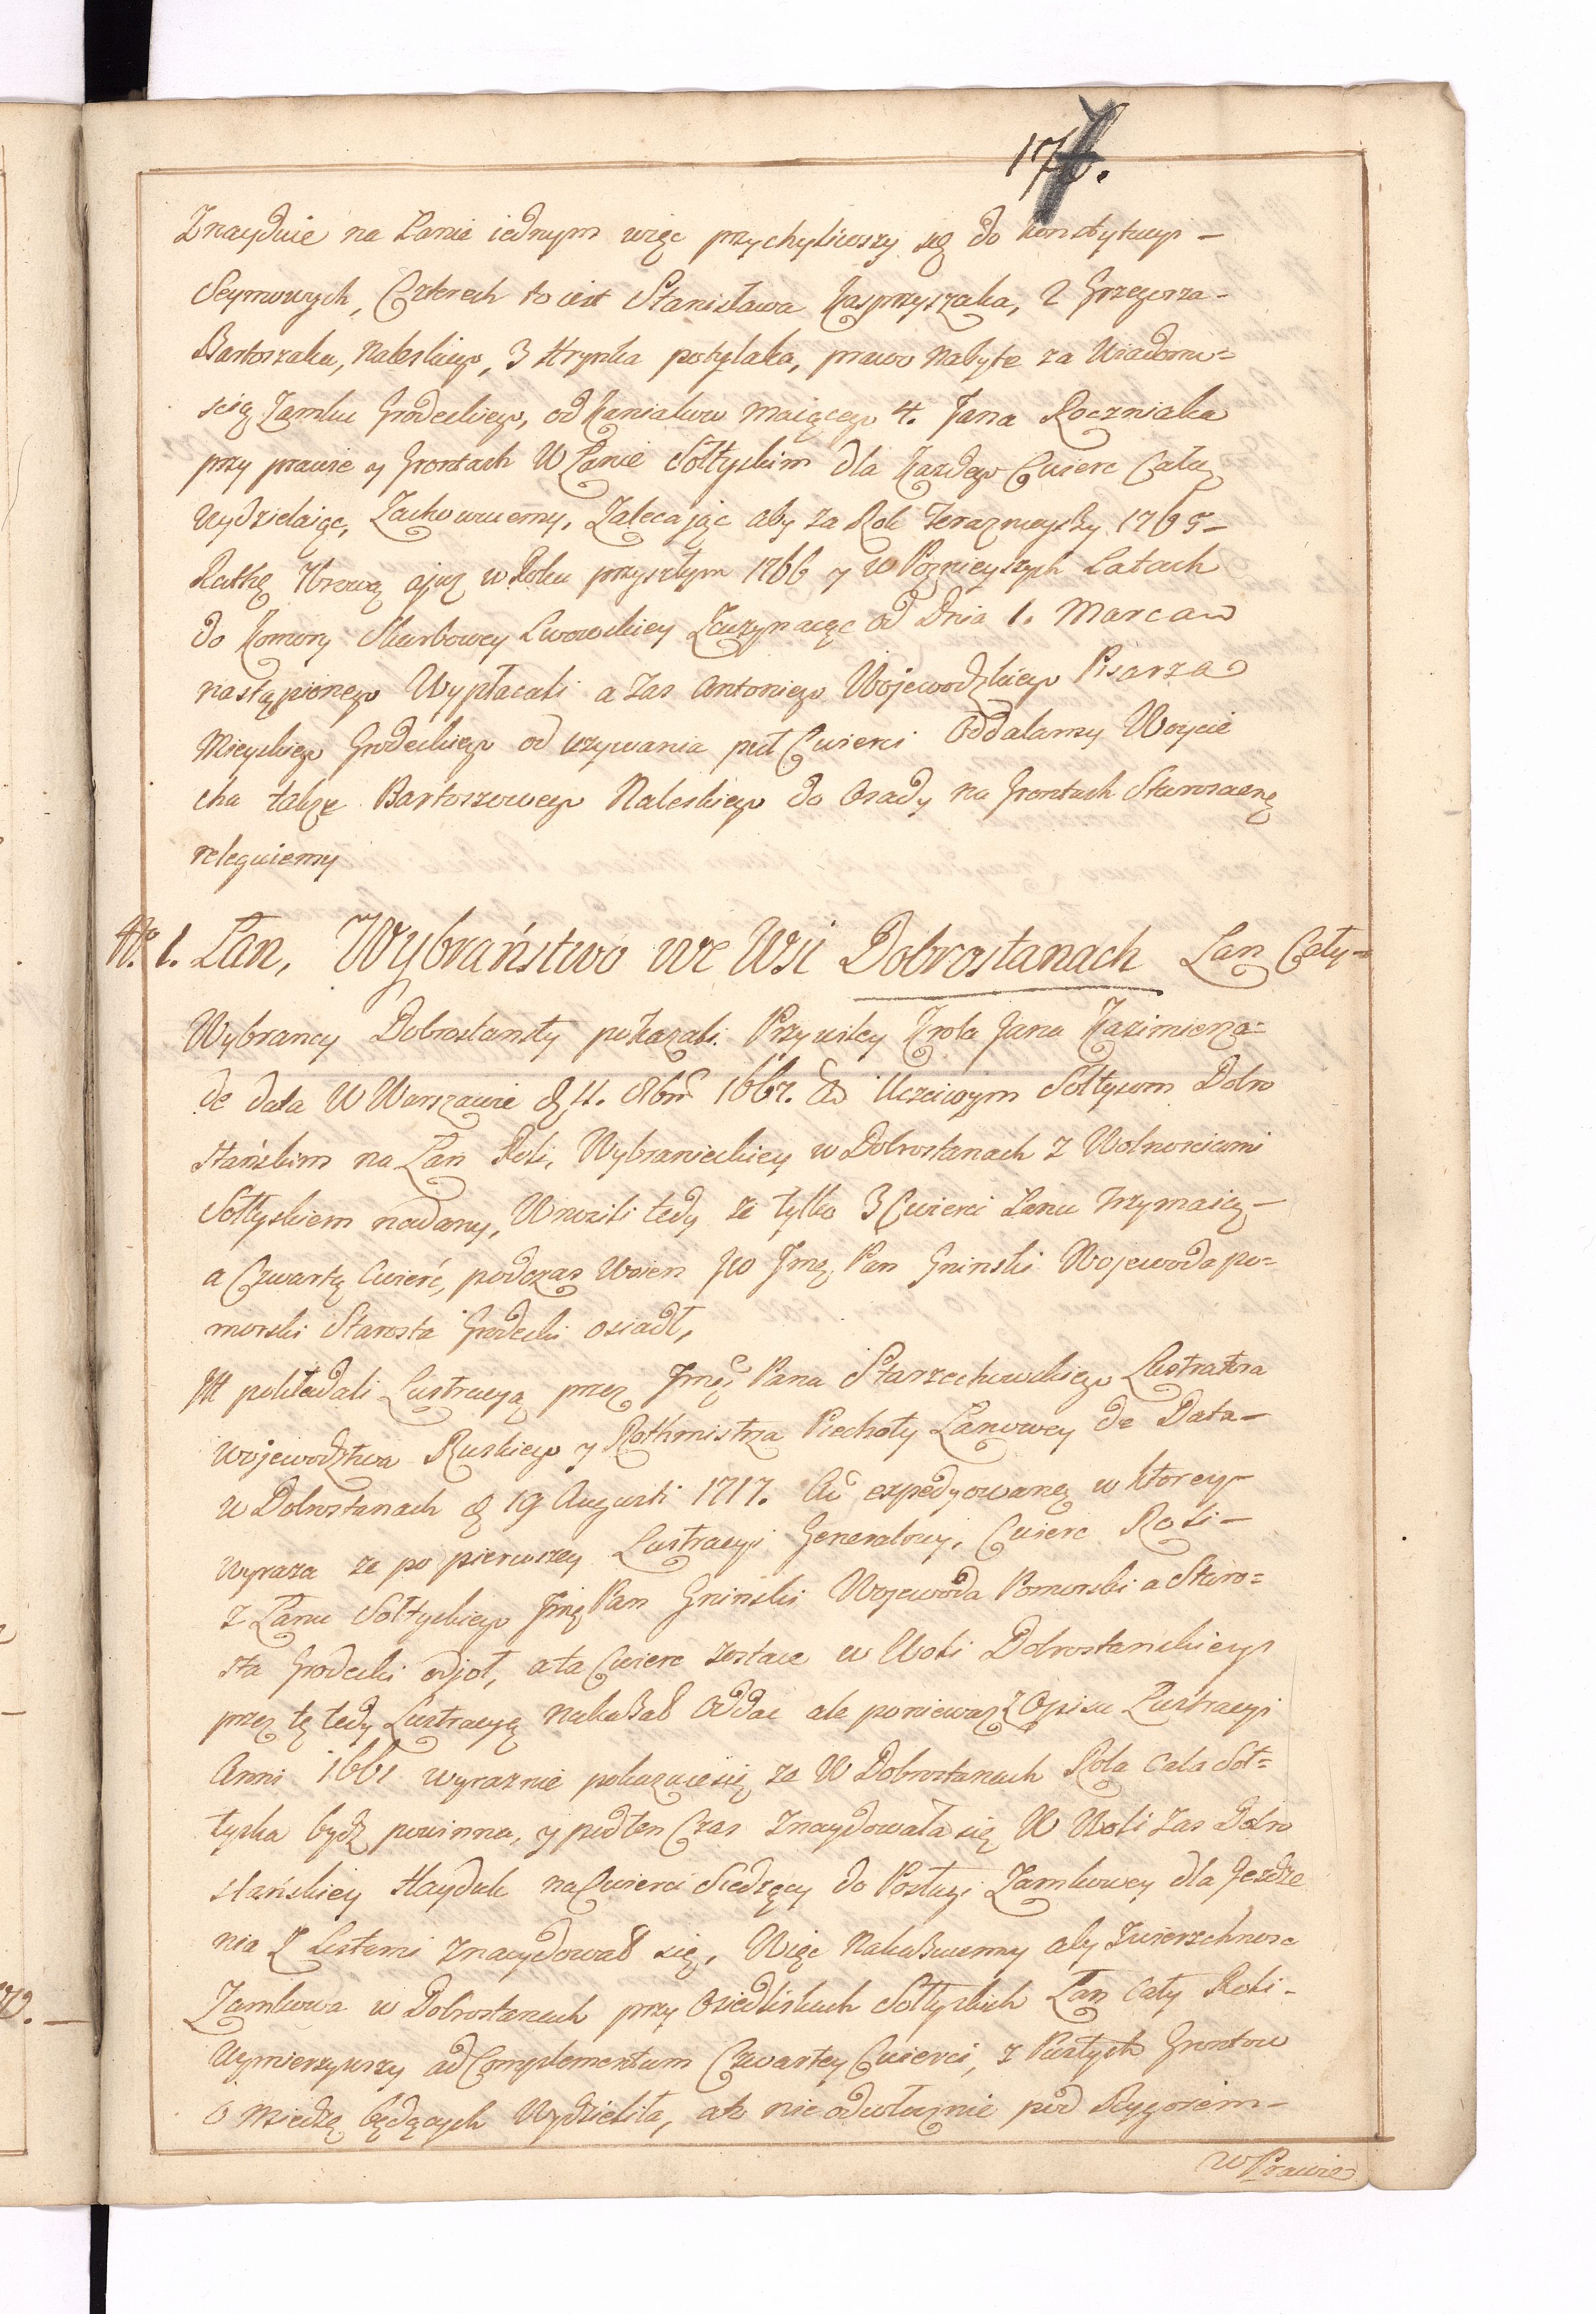 176.
Znayduie na Łanie iednym więc przychyliwszy się do konstytucyi –
Seymowych, Czterech to iest Stanisława Kasprzyszaka, 2 Grzegorza –
Bartoszaka, Naleskiego, 3 Hrynka potylaka, prawo Nabyte za Wiadomo=
scią Zamku Grodeckiego, od Kanialwa maiącego 4. Jana Roczniaka
przy prawie y Grontach W Łanie Sołtyskim dla Kazdego Cwierc Całą
Wydzielaiąc, Zachowuiemy, Zalecając aby za Rok Terazneyszy 1765 –
Ratkę w Roku przyszłym 1766 y w Poznieyszych Latach
do Komory Skarbowey Lwowskiey Zaczynaiąc od Dnia 1. Marca
nastąpionego Wypłacali a Zas Antoniego Wojewodzkiego Pisarza
Mieyskiego Grodeckiego od uzywania puł Cwierci Oddalamy Woycie
cha takze Bartoszowego Naleskiego do Osady na Grontach Starosciene
releguiemy
No. 1. Łan, Wybraństwo we Wsi Dobrostanach Łan Cały =
Wybrancy Dobrostansty pokazali Przywiley Krola Jana Kazimierza =
de data W Warszawie d 11. 8br Uczciwym Sołtysom Dobro
stańskim na Łan Roli, Wybranieckiey w Dobrostanach z Wolnosciami
Sołtyskiem nadany, Wnosili tedy ze tylko 3 Cwierci Łanu trzymaią –
a Czwartą Cwierć, podczas Woien JW Jmę Pan Gninski Wojewoda po=
morski Starosta Grodecki osiadł,
It pokładali Lustracyą przez Jmę Pana Starzechowskiego Lustratora
Wojewodztwa Ruskiego y Rothmistrza Piechoty Łanowey de Data –
w Dobrostanach d 19 Augusti 1717. Ao expedyowaną w ktorey
wyraza ze po pierwszey Lustracyi Generalney, Cwierc Roli –
z Łanu Sołtyskiego Jmę Pan Gninski Wojewoda Pomorski a Staro=
sta Grodecki odjoł, a ta Cwierc zostaie w Woli Dobrostanskiey
przez tę tedy Lustracyą nakazał Oddac ale poniewasz z Opisu Lustracyi
Anni 1661 wyraznie pokazuie się ze W Dobrostanach Rola Cała Soł=
tyska bydz powinna, y podten Czas Znaydowała się W Woli Zas Dobro
stańskiey Hayduk na Cwierci Siedzący do Posługi Zamkowey dla Jezdze
nia Z Listami znaydował się, Więc Nakazuiemy aby Zwierzchnosc
Zamkowa w Dobrostanach przy Osiedliskach Sołtyskich Łan Cały Roli –
Wymierzywszy ad Complementum Czwartey Cwierci, z Pustych Grontow
o miedzę będących Wydzieliła, a to nieodwłocznie pod Rygorem –
w Prawie